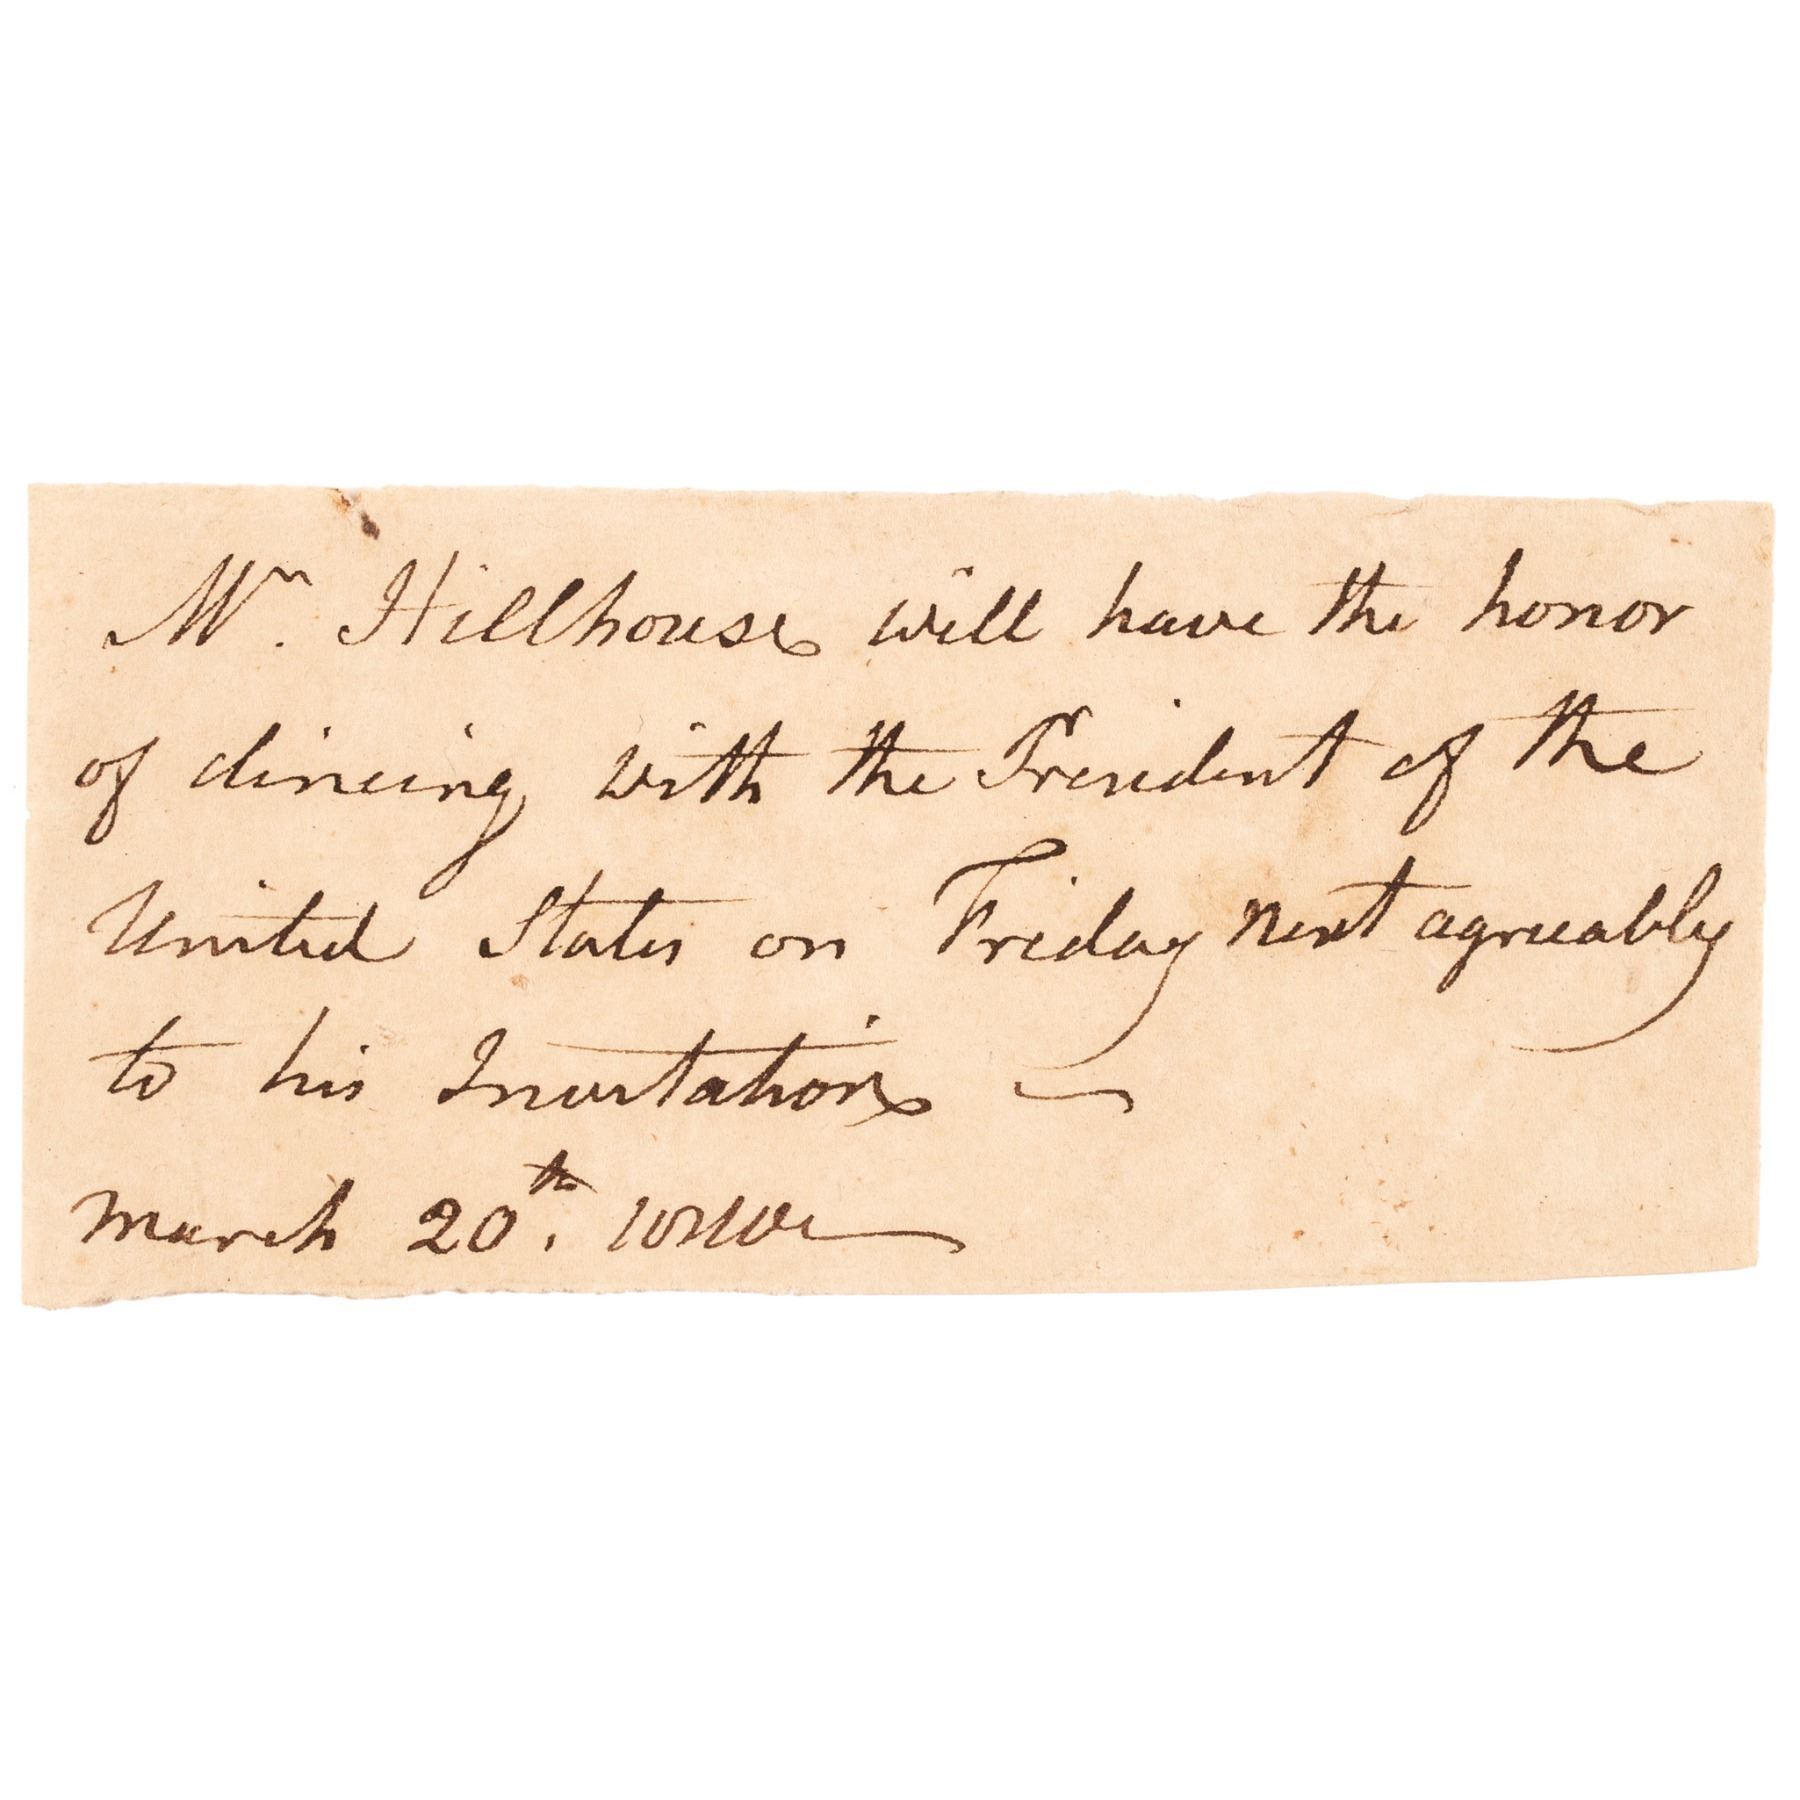 Mr. Hillhouse will have the honor
of dineing with the President of the
United States on Friday next agreeably
to his Invitation —
March 20th.